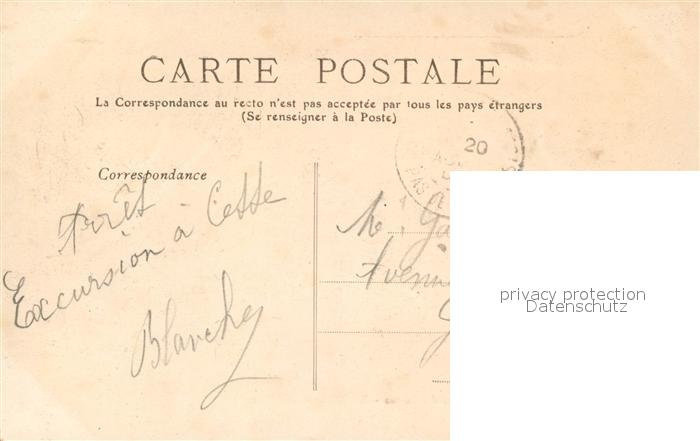 CARTE POSTALE
La Correspondance au recto n'est pas acceptée par tous les pays étrangers
(Se renseigner à la Poste)
20
PAS DE
Correspondance
Arrêt
Excursion à Cette
Blanche
M.
privacy protection
Datenschutz